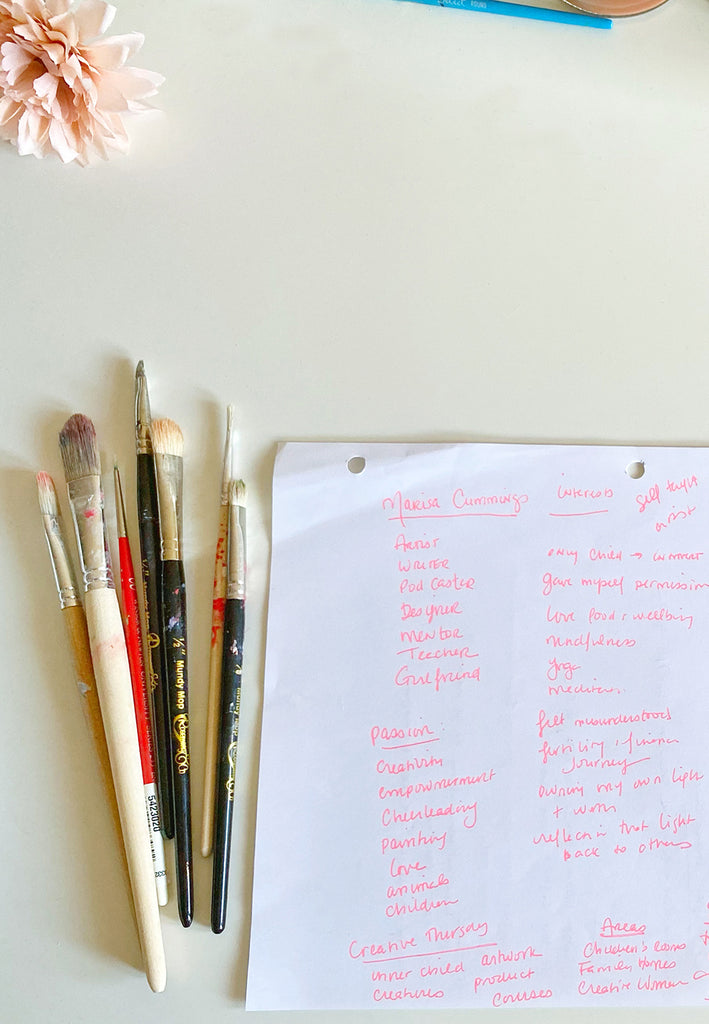 ROUND
Marisa Cummings
Artist
Writer
Pod caster
Designer
Mentor
Teacher
Girlfriend
Passion:
Creativity
empowerment
Cheerleading
painting
love
animals
children
Creative Thursday
inner child artwork
creatures product
courses
interests
self taught
artist
only child →
gave myself permission
love food + wellbeing
mindfulness
yoga
felt misunderstood
fertility
journey
owning my own light
+ worth
reflecting that light
back to others
Areas
Children's rooms
Family homes
Creative Women
1/2" Mundy Mop
5423020